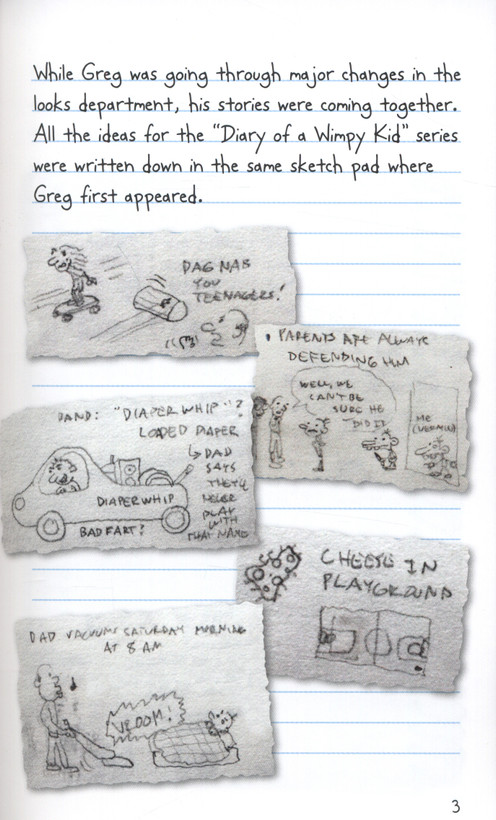 While Greg was going through major changes in the
looks department, his stories were coming together.
All the ideas for the “Diary of a Wimpy Kid” series
were written down in the same sketch pad where
Greg first appeared.
DAG NAB
YOU
TEENAGERS!
PARENTS ARE ALWAYS
DEFENDING HIM
WELL, WE
CAN'T BE
SURE HE
DID IT
ME
BAND: "DIAPER WHIP"?
LOADED DIAPER
DAD
SAYS
THEY'LL
NEVER
PLAY
WITH
THAT NAME
DIAPERWHIP
BAD FART?
CHEESE IN
PLAYGROUND
DAD VACUUMS SATURDAY MORNING
AT 8 AM
VROOM!
3